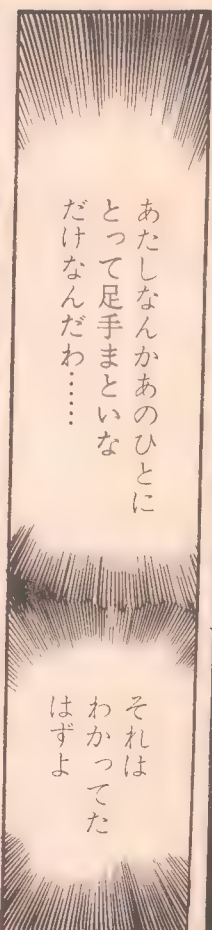 あたしなんかあのひとに
とって足手まといな
だけなんだわ……
それは
わかってた
はずよ